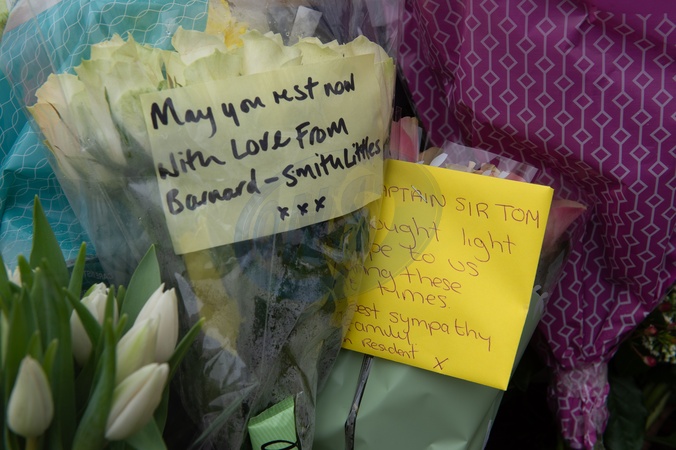 May you rest now
With Love From
Barnard-Smith Littles
x x x
CAPTAIN SIR TOM
ought light
pe to us
ing these
times
est sympathy
family
Resident x